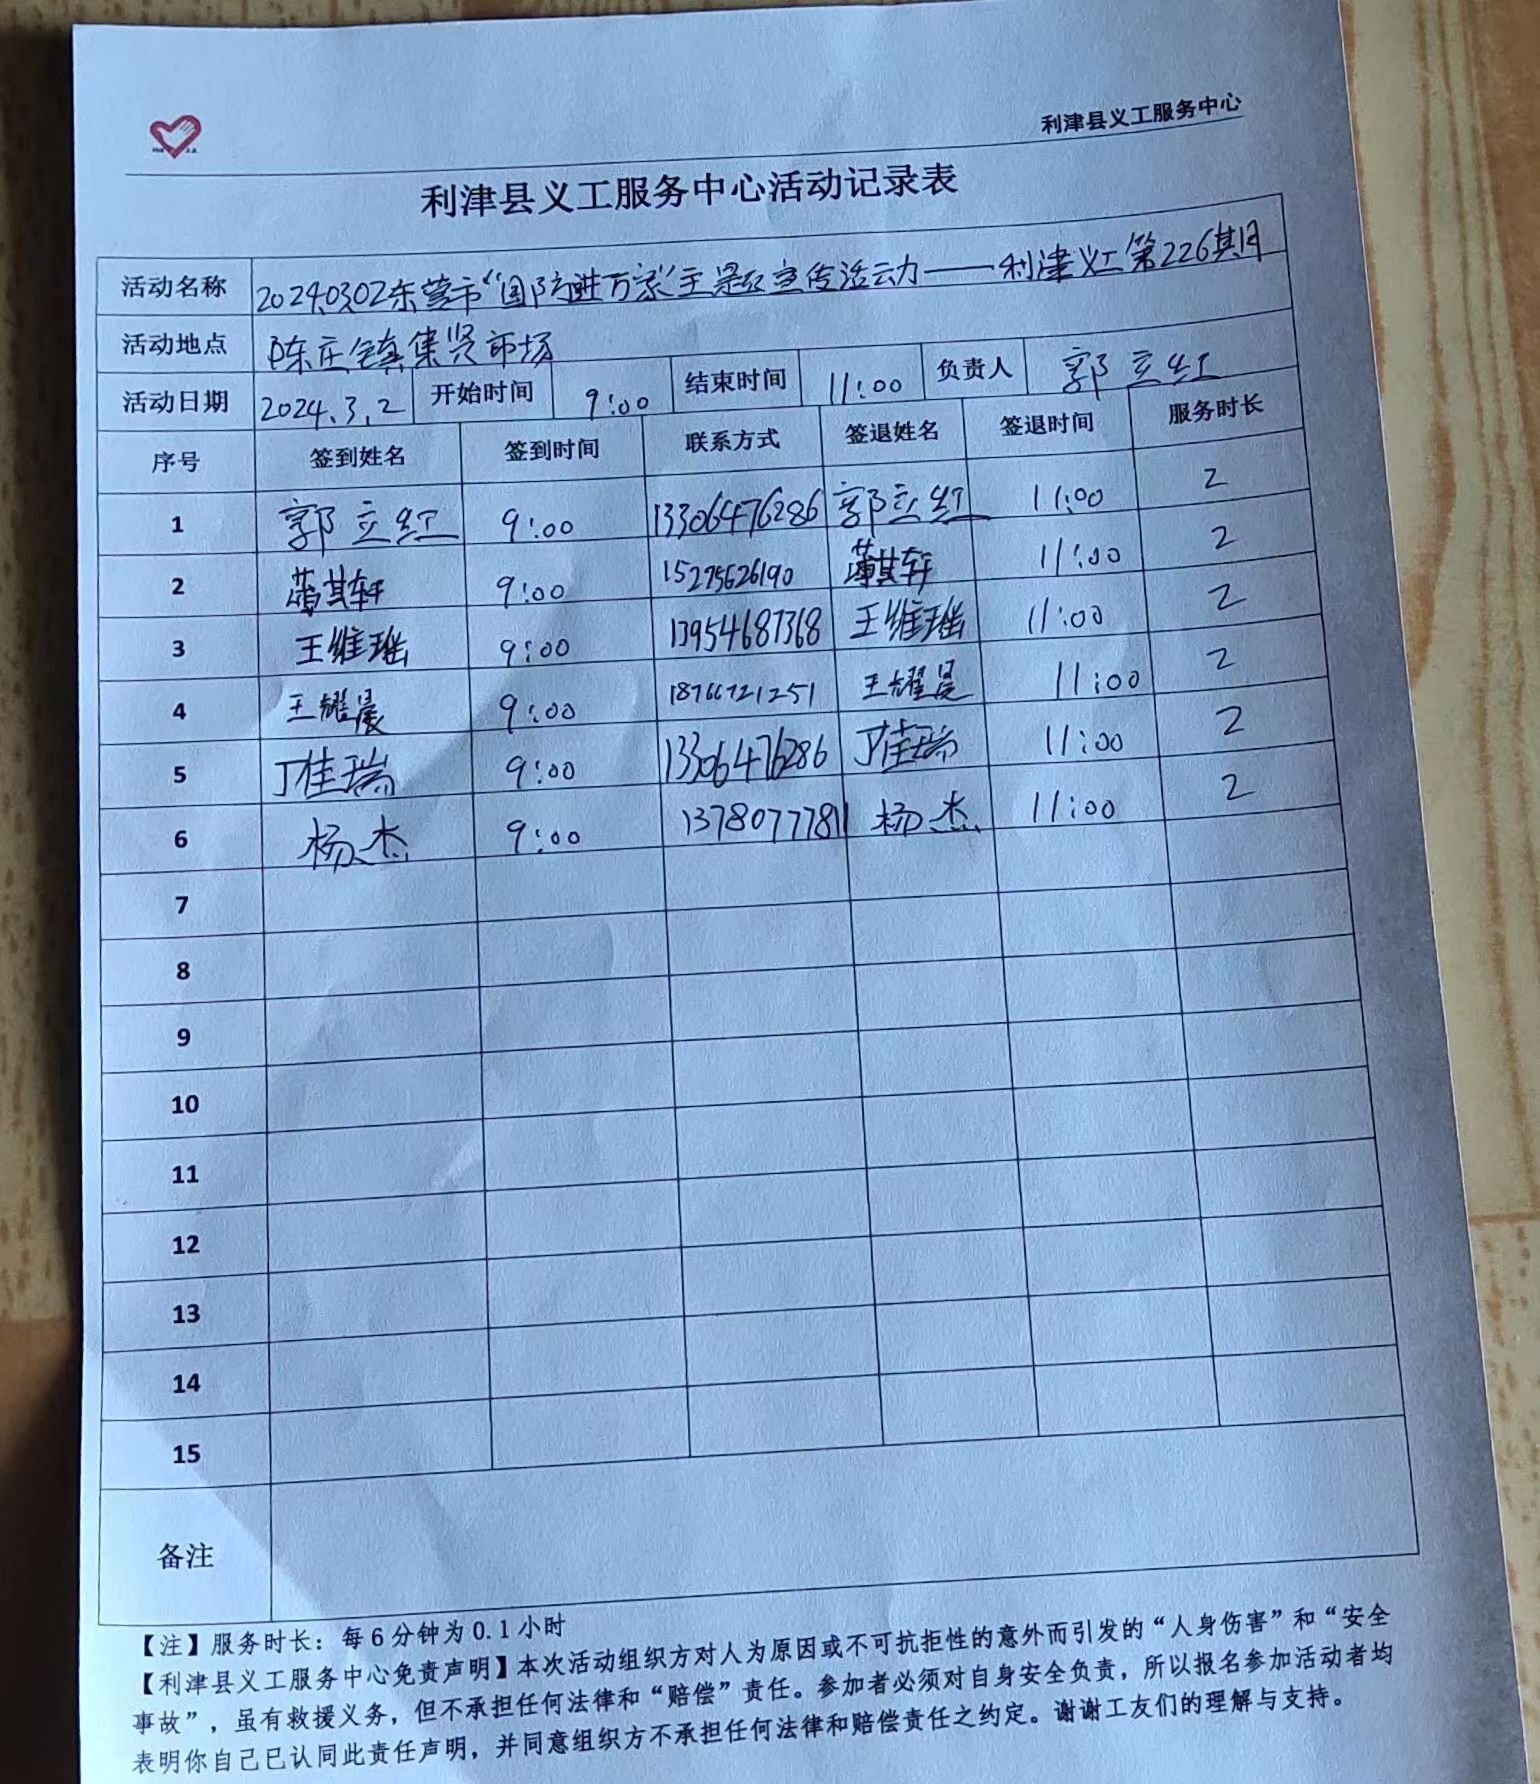 利津县义工服务中心
利津县义工服务中心活动记录表
活动名称 20240302东营市“国防进万家”主题宣传活动——利津义工第226期
活动地点 陈庄镇集贤市场
活动日期 2024.3.2 开始时间 9:00 结束时间 11:00 负责人 郭立红
序号 签到姓名 签到时间 联系方式 签退姓名 签退时间 服务时长
1 郭立红 9:00 13306476286 郭立红 11:00 2
2 其轩 9:00 15275626190 其轩 11:00 2
3 王维瑶 9:00 13954687368 王维瑶 11:00 2
4 王耀晨 9:00 18766721251 王耀晨 11:00 2
5 丁佳瑞 9:00 13306476286 丁佳瑞 11:00 2
6 杨杰 9:00 13780777811 杨杰 11:00 2
7
8
9
10
11
12
13
14
15
备注
【注】服务时长：每6分钟为0.1小时
【利津县义工服务中心免责声明】本次活动组织方对人为原因或不可抗拒性的意外而引发的“人身伤害”和“安全
事故”，虽有救援义务，但不承担任何法律和“赔偿”责任。参加者必须对自身安全负责，所以报名参加活动者均
表明你自己已认同此责任声明，并同意组织方不承担任何法律和赔偿责任之约定。谢谢工友们的理解与支持。